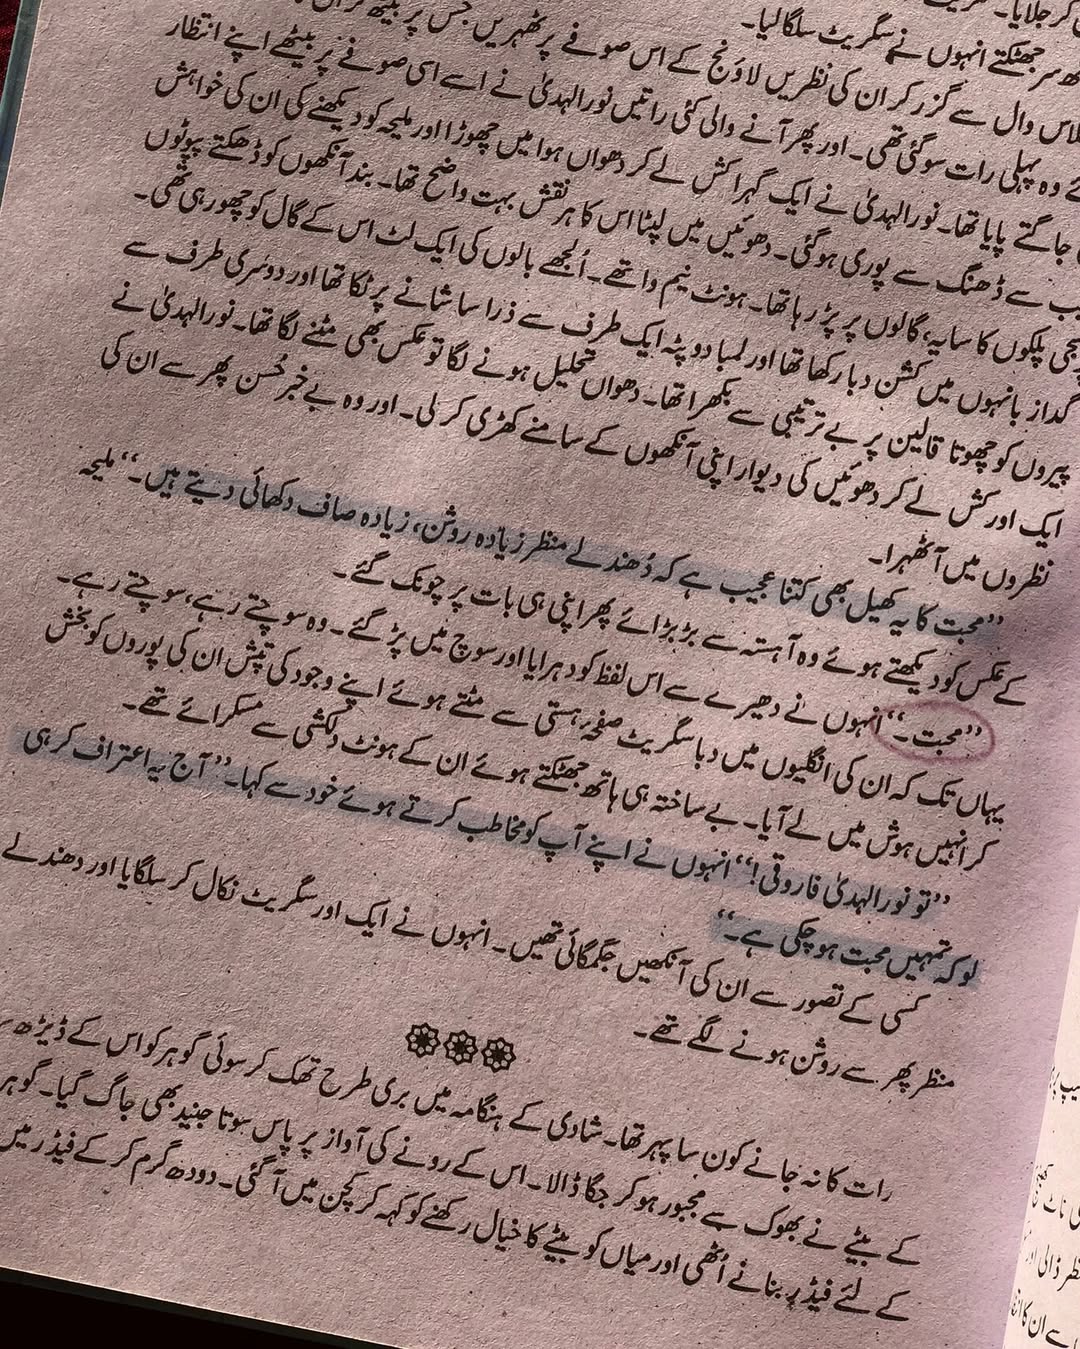 کر جلایا۔
سر جھٹکتے انہوں نے سگریٹ سلگا لیا۔
گلاس وال سے گزر کر ان کی نظریں لاؤنج کے اس صوفے پر ٹھہریں جس پر بیٹھ کر
وہ پہلی رات سو گئی تھی۔ اور پھر آنے والی کئی راتیں نورالہدیٰ نے اسے اسی صوفے پر بیٹھے اپنے انتظار
جاگتے پایا تھا۔ نورالہدیٰ نے ایک گہرا کش لے کر دھواں ہوا میں چھوڑا اور ملیحہ کو دیکھنے کی ان کی خواہش
سے ڈھنگ سے پوری ہو گئی۔ دھوئیں میں لپٹا اس کا ہر نقش بہت واضح تھا۔ بند آنکھوں کو ڈھکتے پپوٹوں
پلکوں کا سایہ، گالوں پر پڑ رہا تھا۔ ہونٹ نیم وا تھے۔ اُلجھے بالوں کی ایک لٹ اس کے گال کو چھو رہی تھی۔
گداز بانہوں میں کشن دبا رکھا تھا اور لمبا دوپٹہ ایک طرف سے ذرا سا شانے پر ٹکا تھا اور دوسری طرف سے
پیروں کو چھوتا قالین پر بے ترتیبی سے بکھرا تھا۔ دھواں تحلیل ہونے لگا تو عکس بھی مٹنے لگا تھا۔ نورالہدیٰ نے
ایک اور کش لے کر دھوئیں کی دیوار اپنی آنکھوں کے سامنے کھڑی کر لی۔ اور وہ بے خبر حُسن پھر سے ان کی
نظروں میں آ ٹھہرا۔
”محبت کا یہ کھیل بھی کتنا عجیب ہے کہ دُھندلے منظر زیادہ روشن، زیادہ صاف دکھائی دیتے ہیں۔“ ملیحہ
کے عکس کو دیکھتے ہوئے وہ آہستہ سے بڑبڑائے پھر اپنی ہی بات پر چونک گئے۔
”محبت۔“ انہوں نے دھیرے سے اس لفظ کو دہرایا اور سوچ میں پڑ گئے۔ وہ سوچتے رہے، سوچتے رہے۔
یہاں تک کہ ان کی انگلیوں میں دبا سگریٹ صفحہ ہستی سے مٹتے ہوئے اپنے وجود کی تپش ان کی پوروں کو بخش
کر انہیں ہوش میں لے آیا۔ بے ساختہ ہی ہاتھ جھٹکتے ہوئے ان کے ہونٹ دلکشی سے مسکرائے تھے۔
”تو نورالہدیٰ فاروقی!“ انہوں نے اپنے آپ کو مخاطب کرتے ہوئے خود سے کہا۔ ”آج یہ اعتراف کر ہی
لو کہ تمہیں محبت ہو چکی ہے۔“
کسی کے تصور سے ان کی آنکھیں جگمگائی تھیں۔ انہوں نے ایک اور سگریٹ نکال کر سلگایا اور دھندلے
منظر پھر سے روشن ہونے لگے تھے۔
رات کا نہ جانے کون سا پہر تھا۔ شادی کے ہنگامہ میں بری طرح تھک کر سوئی گوہر کو اس کے ڈیڑھ
کے بیٹے نے بھوک سے مجبور ہو کر جگا ڈالا۔ اس کے رونے کی آواز پر پاس سوتا جنید بھی جاگ گیا۔ گوہر
کے لئے فیڈر بنانے اُٹھی اور میاں کو بیٹے کا خیال رکھنے کو کہہ کر کچن میں آ گئی۔ دودھ گرم کر کے فیڈر میں